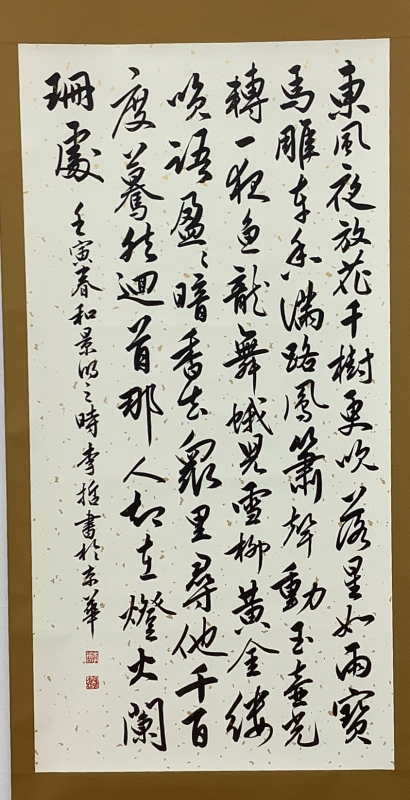 東風夜放花千樹更吹落星如雨寶
馬雕車香滿路鳳簫聲動玉壺光
轉一夜魚龍舞蛾兒雪柳黃金縷
咲語盈〻暗香去眾里尋他千百
度驀然迴首那人却在燈火闌
珊處
壬寅春和景明之時李哲書於京華